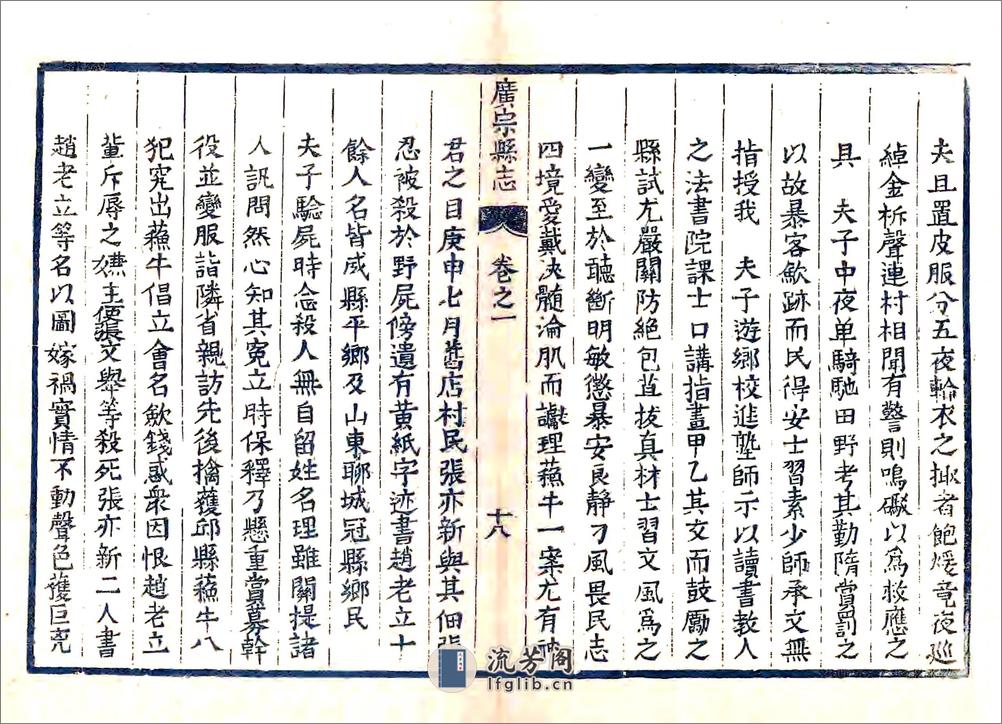 夫且置皮服分五夜輪衣之擊者飽煖竟夜巡
綽金柝聲連村相聞有警則鳴礮以為救應之
具　夫子中夜单騎馳田野考其勤隋賞罰之
以故暴客歛跡而民得安士習素少師承文無
指授我　夫子遊鄉校進塾師示以讀書教人
之法書院課士口講指畫甲乙其文而鼓勵之
縣試尤嚴關防絕包苴拔真材士習文風為之
一變至於聽斷明敏懲暴安良靜刁風畏民志
四境愛戴浹髓淪肌而讞理蘓牛一案尤有神
廣宗縣志
卷之一
十八
君之目庚申七月舊店村民張亦新與其佃張
忍被殺於野屍傍遺有黄紙字迹書趙老立十
餘人名皆咸縣平鄉及山東聊城冠縣鄉民
夫子驗屍時念殺人無自留姓名理雖關提諸
人訊問然心知其冤立時保釋乃懸重賞募幹
役並變服詣隣省親訪先後擒獲邱縣蘓牛八
犯究出蘓牛倡立會名歛錢惑衆因恨趙老立
軰斥辱之嫌主使張文舉等殺死張亦新二人書
趙老立等名以圖嫁禍實情不動聲色獲巨兇
流芳阁
lfglib.cn